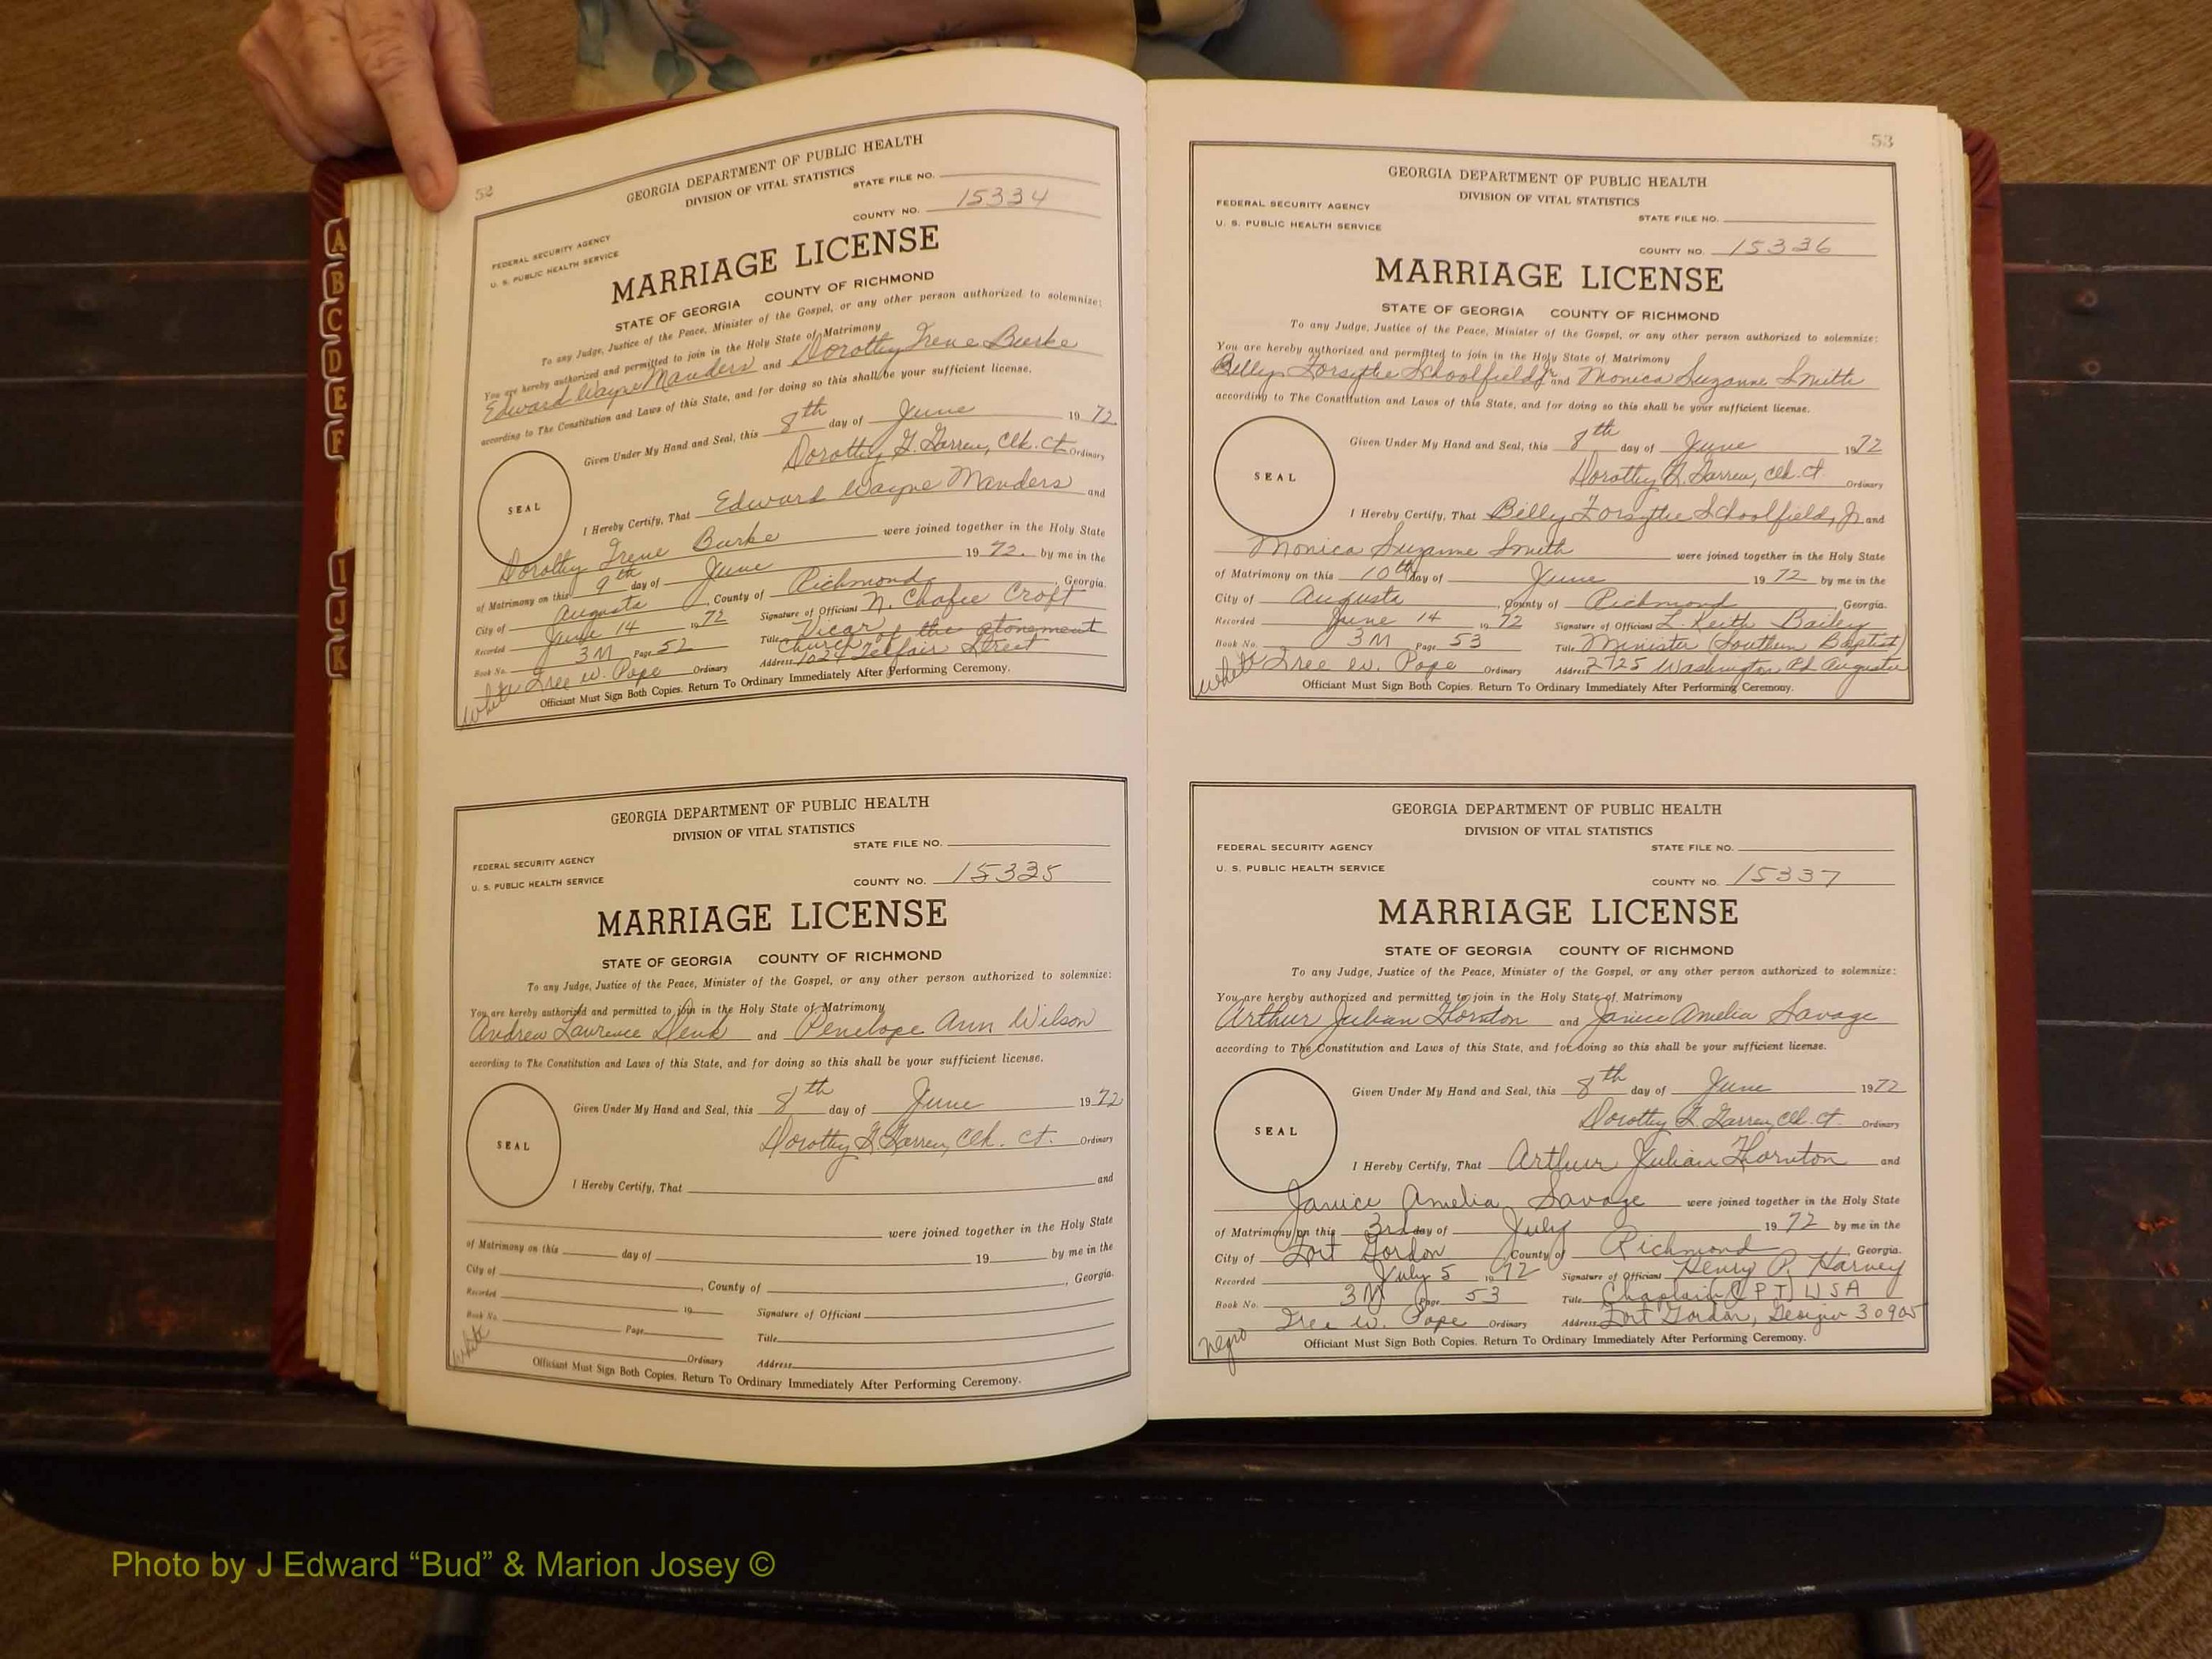 A
B
C
D
E
F
I
J
K
52
GEORGIA DEPARTMENT OF PUBLIC HEALTH
DIVISION OF VITAL STATISTICS
STATE FILE NO.
COUNTY NO. 15334
FEDERAL SECURITY AGENCY
U. S. PUBLIC HEALTH SERVICE
MARRIAGE LICENSE
STATE OF GEORGIA COUNTY OF RICHMOND
To any Judge, Justice of the Peace, Minister of the Gospel, or any other person authorized to solemnize:
You are hereby authorized and permitted to join in the Holy State of Matrimony
Edward Wayne Manders and Dorothy Irene Burke
according to The Constitution and Laws of this State, and for doing so this shall be your sufficient license.
Given Under My Hand and Seal, this 8th day of June 1972
Dorothy G. Garren, Clk. Ct. Ordinary
SEAL
I Hereby Certify, That Edward Wayne Manders and
Dorothy Irene Burke were joined together in the Holy State
of Matrimony on this 9th day of June 1972 by me in the
City of Augusta, County of Richmond, Georgia.
Recorded June 14 1972 Signature of Officiant N. Chafee Croft
Book No. 3M Page 52 Title Vicar of the atonement Church
white W. Pope Ordinary Address 1024 Telfair Street
Officiant Must Sign Both Copies. Return To Ordinary Immediately After Performing Ceremony.
GEORGIA DEPARTMENT OF PUBLIC HEALTH
DIVISION OF VITAL STATISTICS
STATE FILE NO.
FEDERAL SECURITY AGENCY
U. S. PUBLIC HEALTH SERVICE
COUNTY NO. 15335
MARRIAGE LICENSE
STATE OF GEORGIA COUNTY OF RICHMOND
To any Judge, Justice of the Peace, Minister of the Gospel, or any other person authorized to solemnize:
You are hereby authorized and permitted to join in the Holy State of Matrimony
Andrew Lawrence Denk and Penelope Ann Wilson
according to The Constitution and Laws of this State, and for doing so this shall be your sufficient license.
Given Under My Hand and Seal, this 8th day of June 1972
Dorothy G. Garren, Clk. Ct. Ordinary
SEAL
I Hereby Certify, That and
were joined together in the Holy State
of Matrimony on this day of 19 by me in the
City of , County of , Georgia.
Recorded 19 Signature of Officiant
Book No. Page Title
white Ordinary Address
Officiant Must Sign Both Copies. Return To Ordinary Immediately After Performing Ceremony.
53
GEORGIA DEPARTMENT OF PUBLIC HEALTH
DIVISION OF VITAL STATISTICS
FEDERAL SECURITY AGENCY
STATE FILE NO.
U. S. PUBLIC HEALTH SERVICE
COUNTY NO. 15336
MARRIAGE LICENSE
STATE OF GEORGIA COUNTY OF RICHMOND
To any Judge, Justice of the Peace, Minister of the Gospel, or any other person authorized to solemnize:
You are hereby authorized and permitted to join in the Holy State of Matrimony
Billy Forsythe Schoolfield Jr and Monica Suzanne Smith
according to The Constitution and Laws of this State, and for doing so this shall be your sufficient license.
Given Under My Hand and Seal, this 8th day of June 1972
Dorothy G. Garren, Clk. Ct. Ordinary
SEAL
I Hereby Certify, That Billy Forsythe Schoolfield, Jr and
Monica Suzanne Smith were joined together in the Holy State
of Matrimony on this 10th day of June 1972 by me in the
City of Augusta, County of Richmond Georgia.
Recorded June 14 1972 Signature of Officiant L. Keith Bailey
Book No. 3M Page 53 Title Minister (Southern Baptist)
white W. Pope Ordinary Address 2725 Washington Rd Augusta
Officiant Must Sign Both Copies. Return To Ordinary Immediately After Performing Ceremony.
GEORGIA DEPARTMENT OF PUBLIC HEALTH
DIVISION OF VITAL STATISTICS
FEDERAL SECURITY AGENCY
STATE FILE NO.
U. S. PUBLIC HEALTH SERVICE
COUNTY NO. 15337
MARRIAGE LICENSE
STATE OF GEORGIA COUNTY OF RICHMOND
To any Judge, Justice of the Peace, Minister of the Gospel, or any other person authorized to solemnize:
You are hereby authorized and permitted to join in the Holy State of Matrimony
Arthur Julian Thornton and Janice Amelia Savage
according to The Constitution and Laws of this State, and for doing so this shall be your sufficient license.
Given Under My Hand and Seal, this 8th day of June 1972
Dorothy G. Garren, Clk. Ct. Ordinary
SEAL
I Hereby Certify, That Arthur Julian Thornton and
Janice Amelia Savage were joined together in the Holy State
of Matrimony on this 3rd day of July 1972 by me in the
City of Fort Gordon County of Richmond, Georgia.
Recorded July 5 1972 Signature of Officiant Henry P. Harvey
Book No. 3M Page 53 Title Chaplain (CPT) USA
W. Pope Ordinary Address Fort Gordon, Georgia 30905
negro Officiant Must Sign Both Copies. Return To Ordinary Immediately After Performing Ceremony.
Photo by J Edward “Bud” & Marion Josey ©